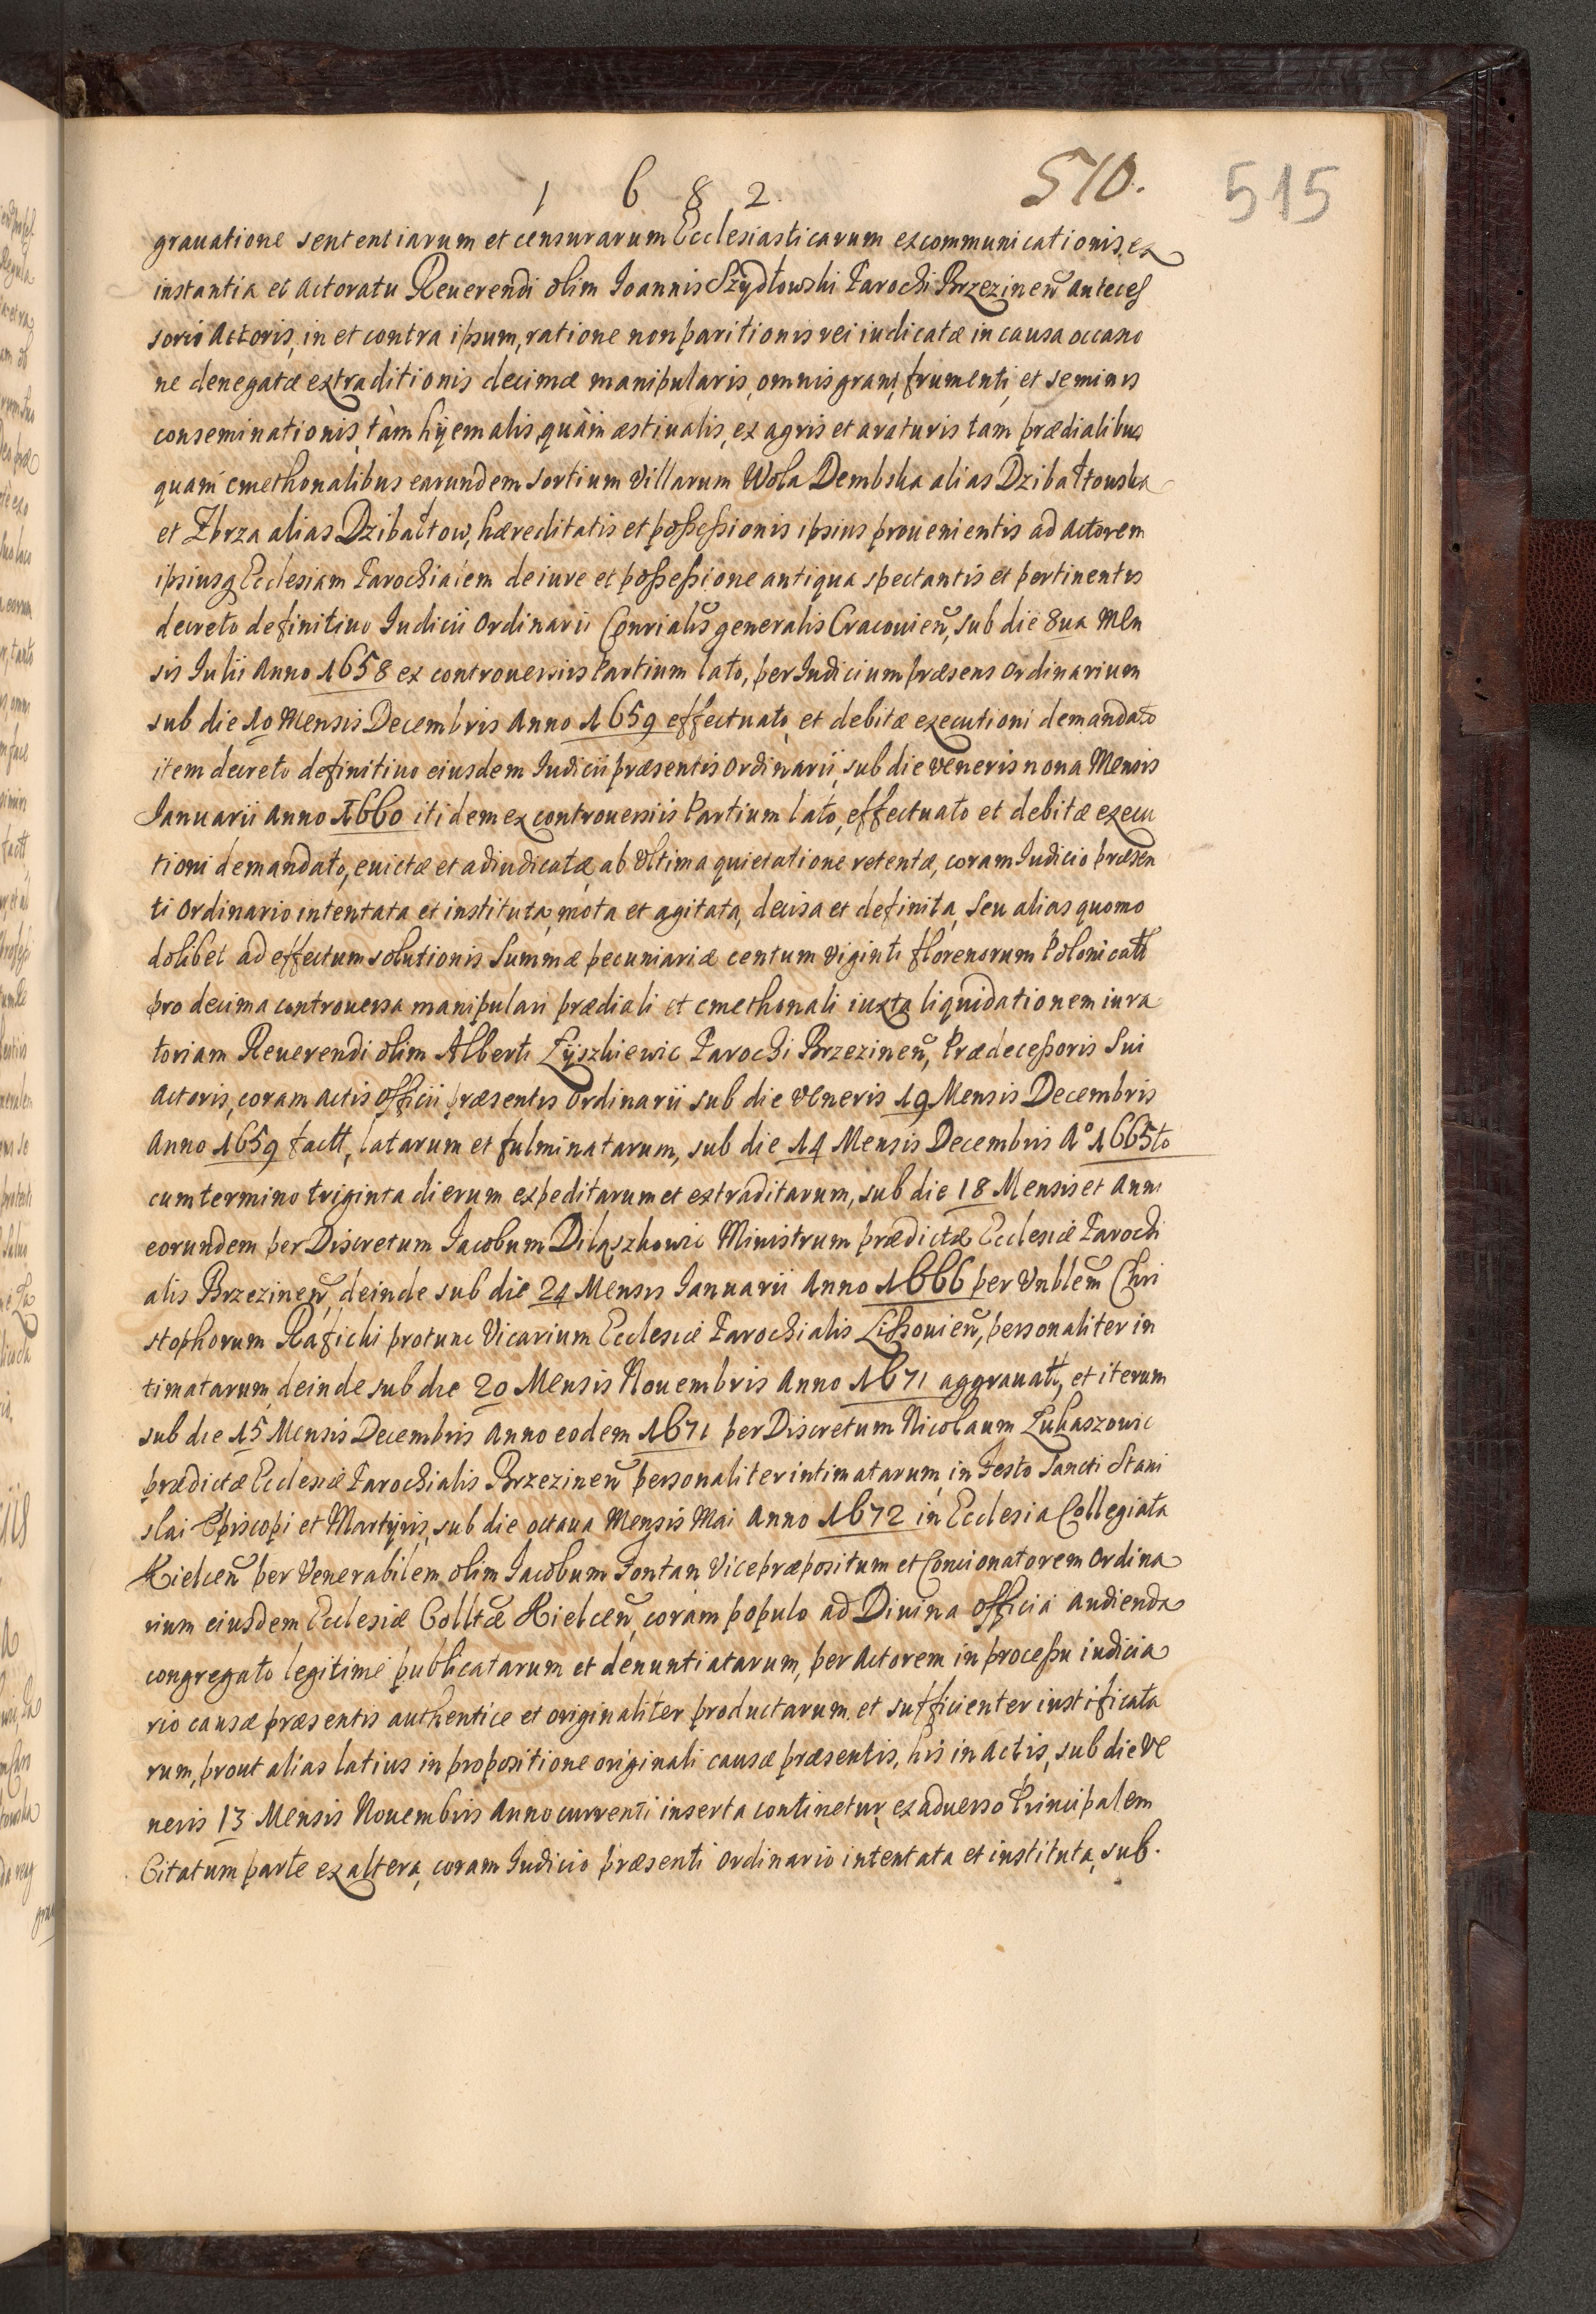 1 6 8 2.
510.
515
grauatione sententiarum et censurarum Ecclesiasticarum excommunicationis, ex
instantia et actoratu Reuerendi olim Ioannis Szydłowski Parochi Brzezineñ anteces
soris Actoris, in et contra ipsum, ratione non paritionis rei iudicatæ in causa occasio
ne denegatæ extraditionis decimæ manipularis, omnis grani, frumenti, et seminis
conseminationis, tàm hyemalis, quàm æstiualis, ex agris et araturis tam prædialibus
quam cmethonalibus earundem sortium Villarum Wola Dembska alias Dzibałtouska
et Zbrza alias Dzibałtow, hæreditatis et possessionis ipsius prouenientis ad Actorem
ipsiusq Ecclesiam Parochialem de iure et possessione antiqua spectantis et pertinentis
decreto definitiuo Iudicii Ordinarii Consrialis generalis Cracouieñ, sub die 8ua Men
sis Iulii Anno 1658 ex controuersiis Partium lato, per Iudicium præsens Ordinarium
sub die 10 Mensis Decembris Anno 1659 effectuato, et debitæ executioni demandato
item decreto definitiuo eiusdem Iudicii præsentis Ordinarii, sub die veneris nona Mensis
Ianuarii Anno 1660 itidem ex controuersiis Partium lato, effectuato et debitæ execu
tioni demandato, euictæ et adiudicatæ, ab vltima quietatione retentæ, coram Iudicio præsen
ti Ordinario intentata et instituta, mota et agitata, decisa et definita, Seu alias quomo
dolibet ad effectum solutionis Summæ pecuniariæ centum viginti florenorum Polonicatt
pro decima controuersa manipulari prædiali et cmethonali iuxta liquidationem iura
toriam Reuerendi olim Alberti Łyszkiewic Parochi Brzezineñ, Prædecessoris Sui
Actoris, coram Actis Officii præsentis Ordinarii sub die Veneris 19 Mensis Decembris
Anno 1659 factt, latarum et fulminatarum, sub die 14 Mensis Decembris A° 1665to
cum termino triginta dierum expeditarum et extraditarum, sub die 18 Mensis et Anni
eorundem per Discretum Iacobum Diląszkowic Ministrum prædictæ Ecclesiæ Parochi
alis Brzezineñ, deinde sub die 24 Mensis Ianuarii Anno 1666 per Vnblem Chri
stophorum Raficki protunc Vicarium Ecclesiæ Parochialis Lissouieñ, personaliter in
timatarum, deinde sub die 20 Mensis Nouembris Anno 1671 aggrauatt, et iterum
sub die 15 Mensis Decembris Anno eodem 1671 per Discretum Nicolaum Łukaszowic
prædictæ Ecclesiæ Parochialis Brzezineñ personaliter intimatarum, in Festo Sancti Stani
slai Episcopi et Martyris, sub die octaua Mensis Mai Anno 1672 in Ecclesia Collegiata
Kielceñ per Venerabilem olim Iacobum Fontan Vicepræpositum et Concionatorem Ordina
rium eiusdem Ecclesiæ Colltæ Kielceñ, coràm populo ad Diuina Officia audienda
congregato legitimè publicatarum et denuntiatarum, per Actorem in processu iudicia
rio causæ præsentis authentice et originaliter productarum et sufficienter iustificata
rum, prout alias latius in propositione originali causæ præsentis, his in Actis, sub die Ve
neris 13 Mensis Nouembris Anno currenti inserta continetur, ex aduerso Principalem
Citatum parte ex altera, coram Iudicio præsenti Ordinario intentata et instituta, sub.